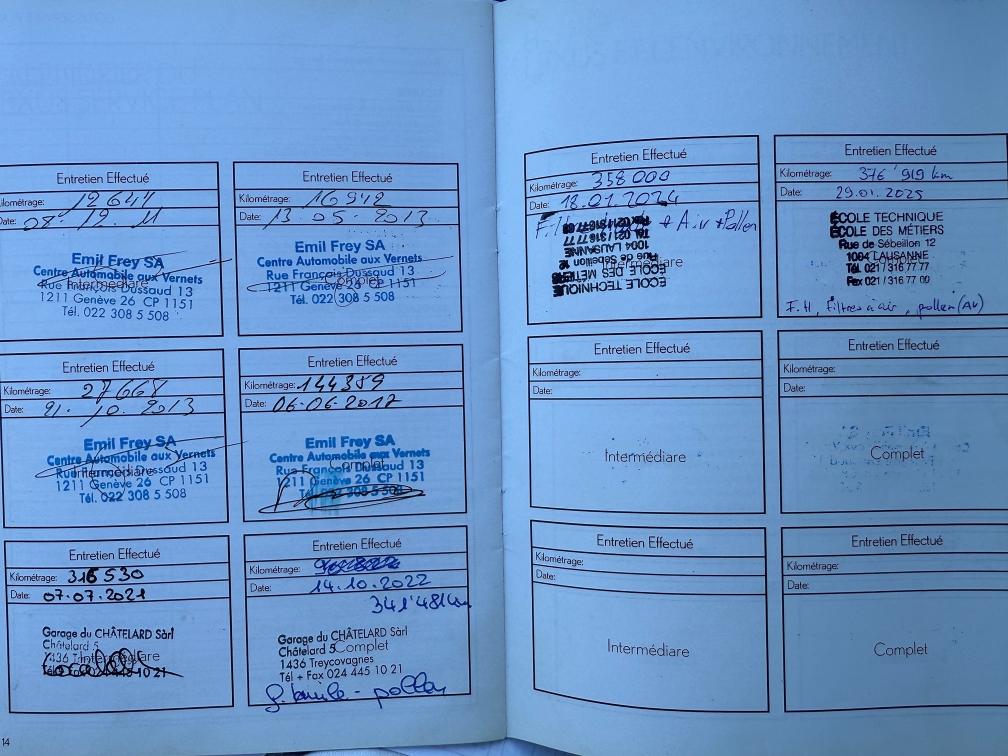 Entretien Effectué
Kilométrage: 12 641
Date: 08. 12. 11
Emil Frey SA
Centre Automobile aux Vernets
Rue François Dussaud 13
Intermédiaire
1211 Genève 26 CP 1151
Tél. 022 308 5 508
Entretien Effectué
Kilométrage: 16 942
Date: 13. 05. 2013
Emil Frey SA
Centre Automobile aux Vernets
Rue François Dussaud 13
Complet
1211 Genève 26 CP 1151
Tél. 022 308 5 508
Entretien Effectué
Kilométrage: 27 668
Date: 21. 10. 2013
Emil Frey SA
Centre Automobile aux Vernets
Rue François Dussaud 13
Intermédiaire
1211 Genève 26 CP 1151
Tél. 022 308 5 508
Entretien Effectué
Kilométrage: 144359
Date: 06-06-2017
Emil Frey SA
Centre Automobile aux Vernets
Rue François Dussaud 13
Complet
1211 Genève 26 CP 1151
Tél. 022 308 5 508
Entretien Effectué
Kilométrage: 316 530
Date: 07.07.2021
Garage du CHÂTELARD Sàrl
Châtelard 5
1436 Intermédiaire
10 21
Entretien Effectué
Kilométrage:
Date: 14.10.2022
341'481 km
Garage du CHÂTELARD Sàrl
Châtelard 5
Complet
1436 Treycovagnes
Tél + Fax 024 445 10 21
pollen
14
Entretien Effectué
Kilométrage: 358 000
Date: 18.01.2024
Air + Pollen
Intermédiaire
ÉCOLE TECHNIQUE
ÉCOLE DES MÉTIERS
Rue de Sébeillon 12
1004 LAUSANNE
Tél. 021 / 316 77 77
Entretien Effectué
Kilométrage: 376'919 km
Date: 29.01.2025
ÉCOLE TECHNIQUE
ÉCOLE DES MÉTIERS
Rue de Sébeillon 12
1004 LAUSANNE
Tél. 021 / 316 77 77
Fax 021 / 316 77 00
F.H, Filtres à air, pollen (AV)
Entretien Effectué
Kilométrage:
Date:
Intermédiare
Entretien Effectué
Kilométrage:
Date:
Complet
Entretien Effectué
Kilométrage:
Date:
Intermédiare
Entretien Effectué
Kilométrage:
Date:
Complet